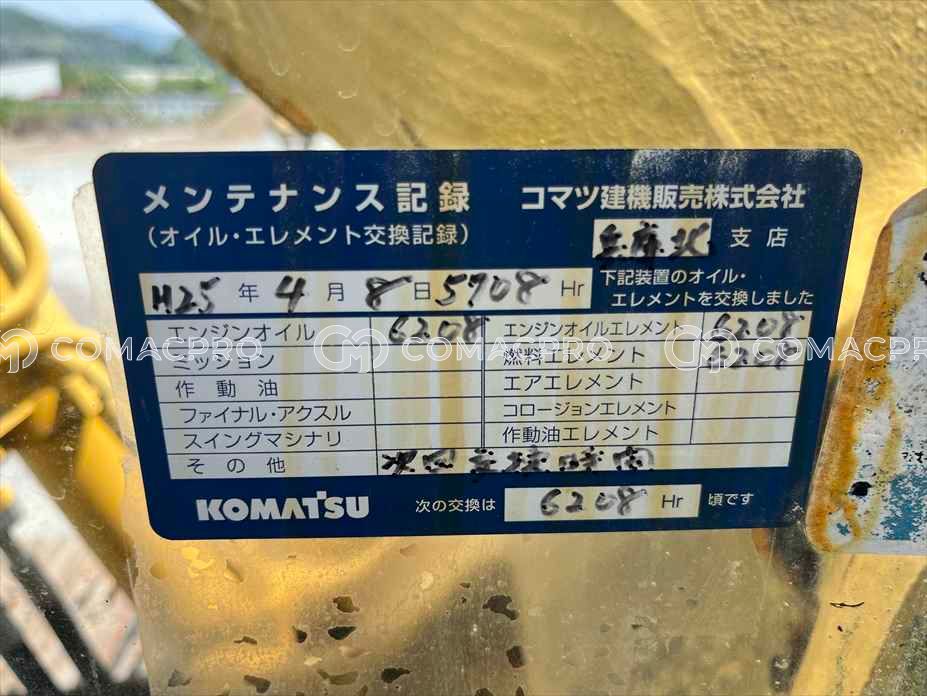 メンテナンス記録
コマツ建機販売株式会社
(オイル・エレメント交換記録)
兵庫北 支店
H25 年 4 月 8 日 5708 Hr
下記装置のオイル・
エレメントを交換しました
エンジンオイル 6208
エンジンオイルエレメント 6208
ミッション
燃料エレメント 6208
作動油
エアエレメント
ファイナル・アクスル
コロージョンエレメント
スイングマシナリ
作動油エレメント
その他 次回交換時間
KOMATSU
次の交換は 6208 Hr 頃です
COMACPRO COMACPRO COMACPRO